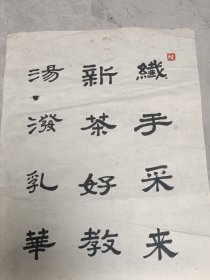 纖手采来
新茶好教
湯潑乳華